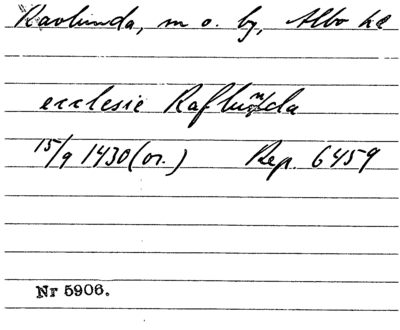 Ravlunda, m o. by, Albo hd
ecclesie Raflunda
15/9 1430 (or.) Rep. 6459
Nr 5906.